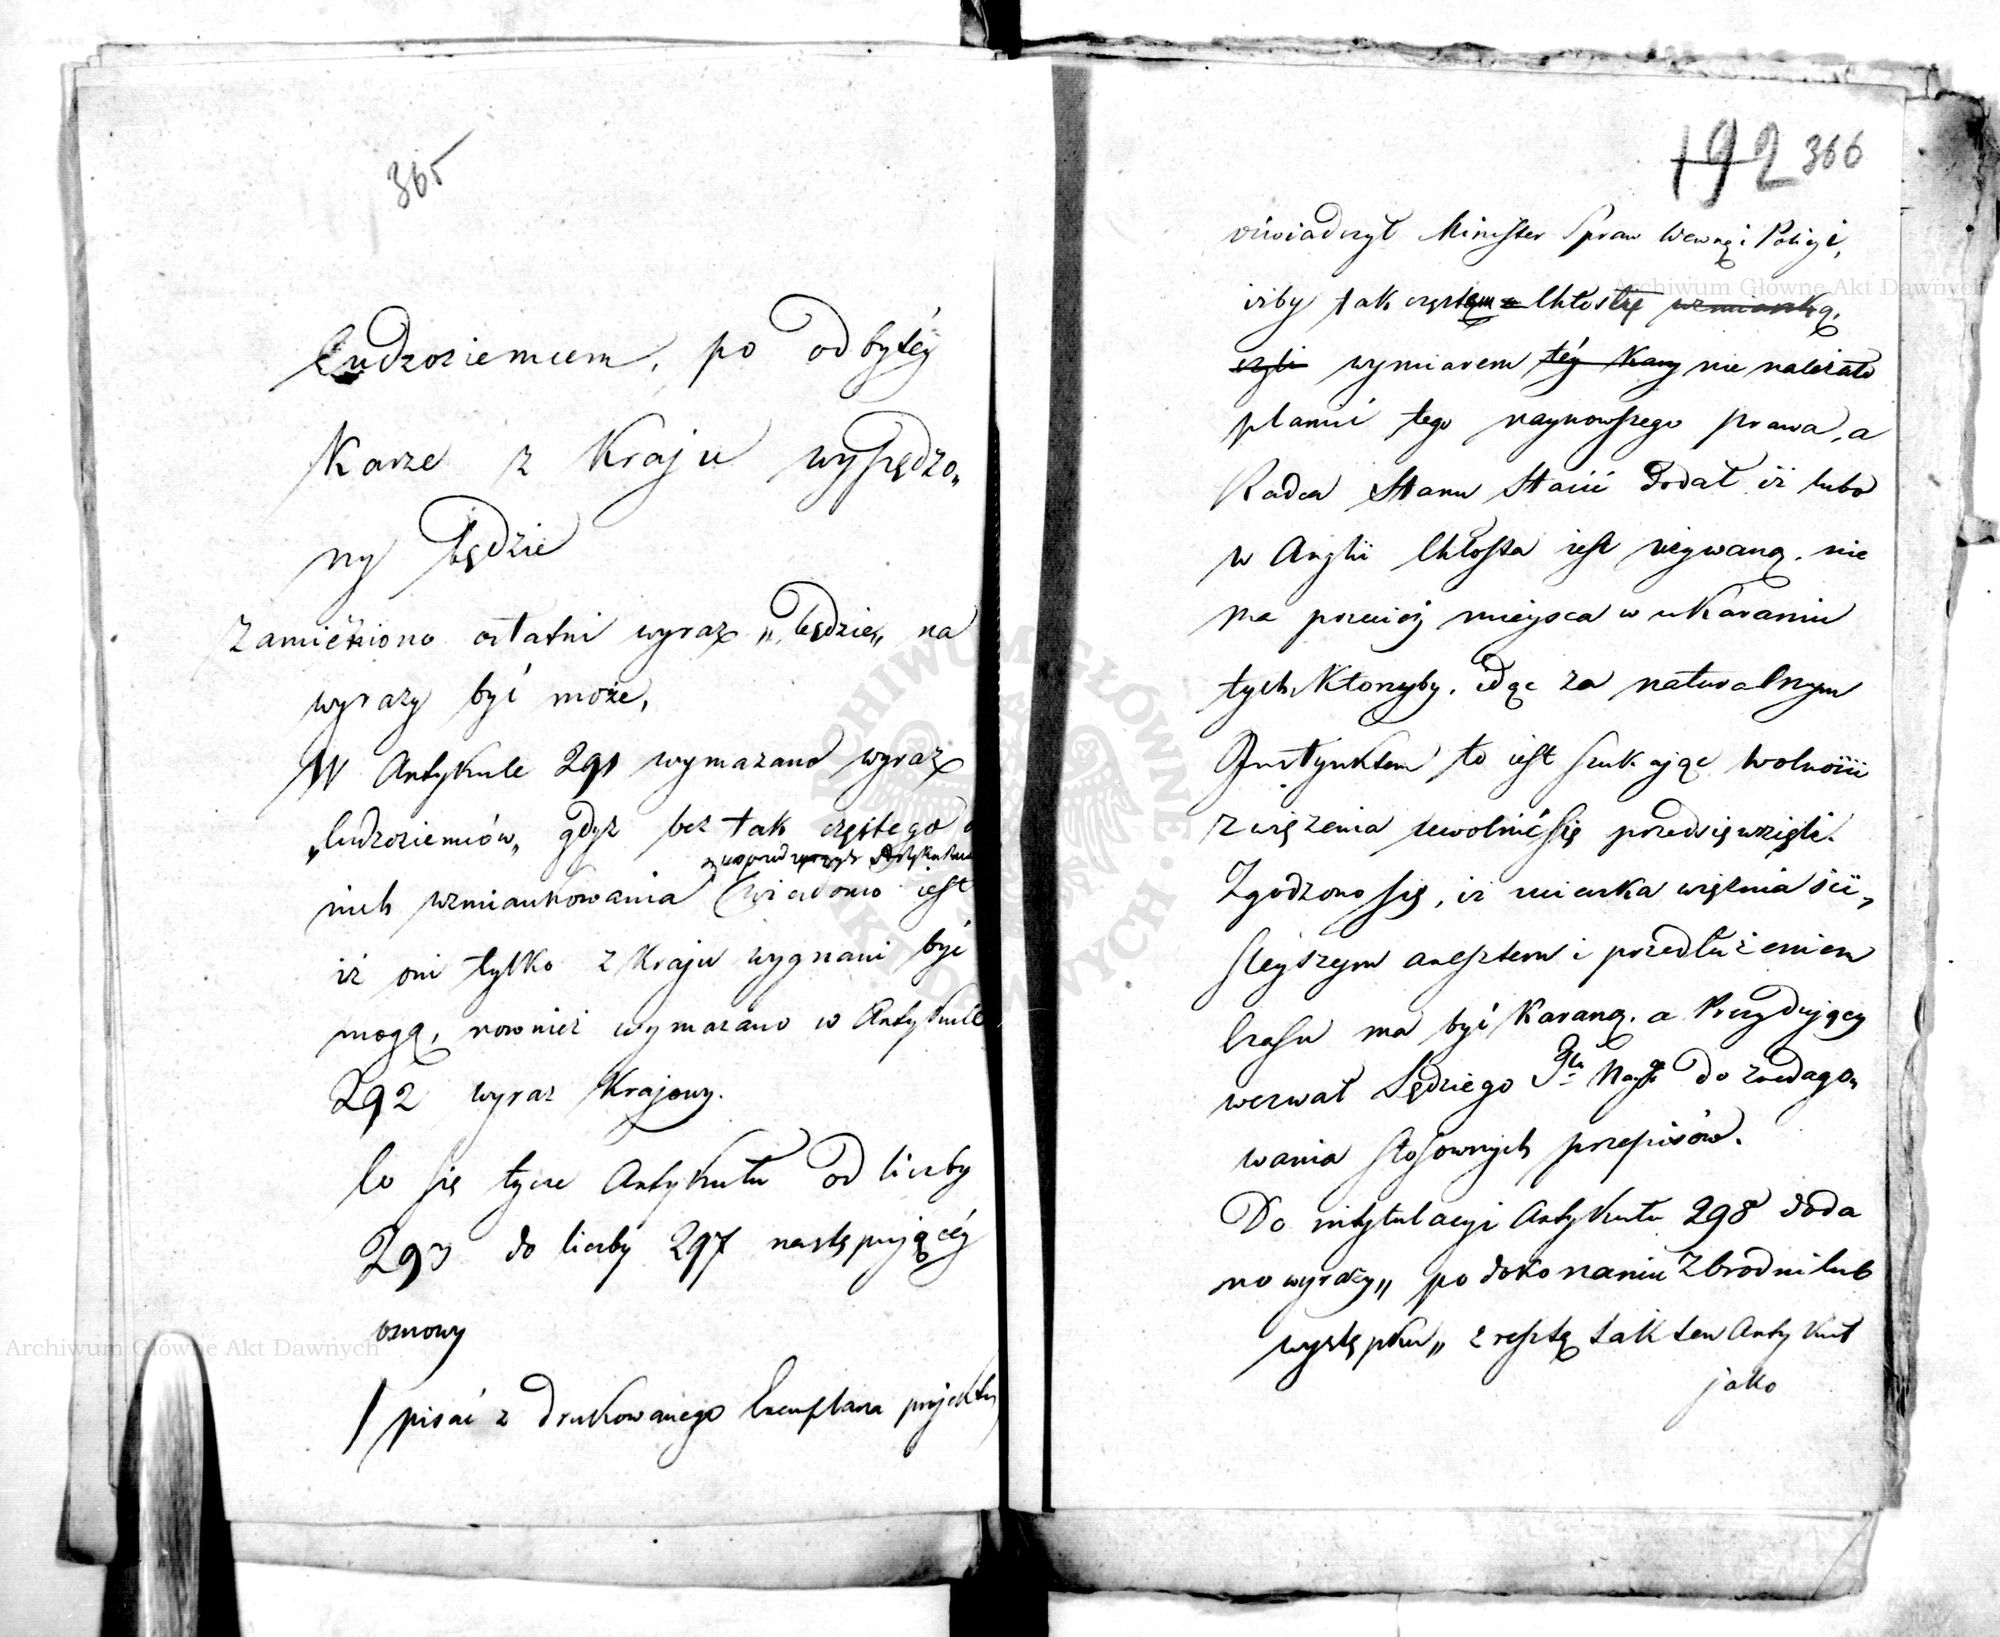 365
Cudzoziemcem, po odbytéy
Karze z Kraju wypędzo„
ny będzie
Zamieniono ostatni wyraz „będzie„ na
wyrazy być może,
W Artykule 291 wymazano wyraz
„Cudzoziemców„ gdyż bez tak częstego o
z uoprzednych Artykułów
nich wzmiankowania wiadomo iest
iż oni tylko z Kraju wygnani być
mogą, rownież wymazano w Artykule
292 wyraz Krajowy.
Co się tycze Artykułu od liczby
293 do liczby 297 następującéy
osnowy
/ pisać z drukowanego Exemplarza projektu
192 366
oświadczył Minister Spraw Wewnę i Policyi,
iżby tak częstym Chłostę wzmianką,
czyli wymiarem téy Kary nie należało
plamić tego naynowszego prawa, a
Radca Stanu Stasic dodał iż lubo
w Anglii Chłosta iest używaną, nie
ma przecież mieysca w ukaraniu
tych, Ktorzyby, idąc za naturalnym
Instynktem to iest szukaiąc wolności
z więzienia uwolnić się przedsięwzięli.
Zgodzono się, iż ucieczka więźnia ści„
sleyszym aresztem i przedłużeniem
Czasu ma być Karaną, a Prezyduiący
wezwał Sędziego Gła Nayż do zredago„
wania stosownych przepisów.
Do intytulacyi Artykułu 298 doda
no wyrazy„ po dokonaniu Zbrodni lub
występku„ zresztą tak ten Artykuł
jako
Archiwum Główne Akt Dawnych
Archiwum Główne Akt Dawnych
ARCHIWUM GŁÓWNE AKT DAWNYCH